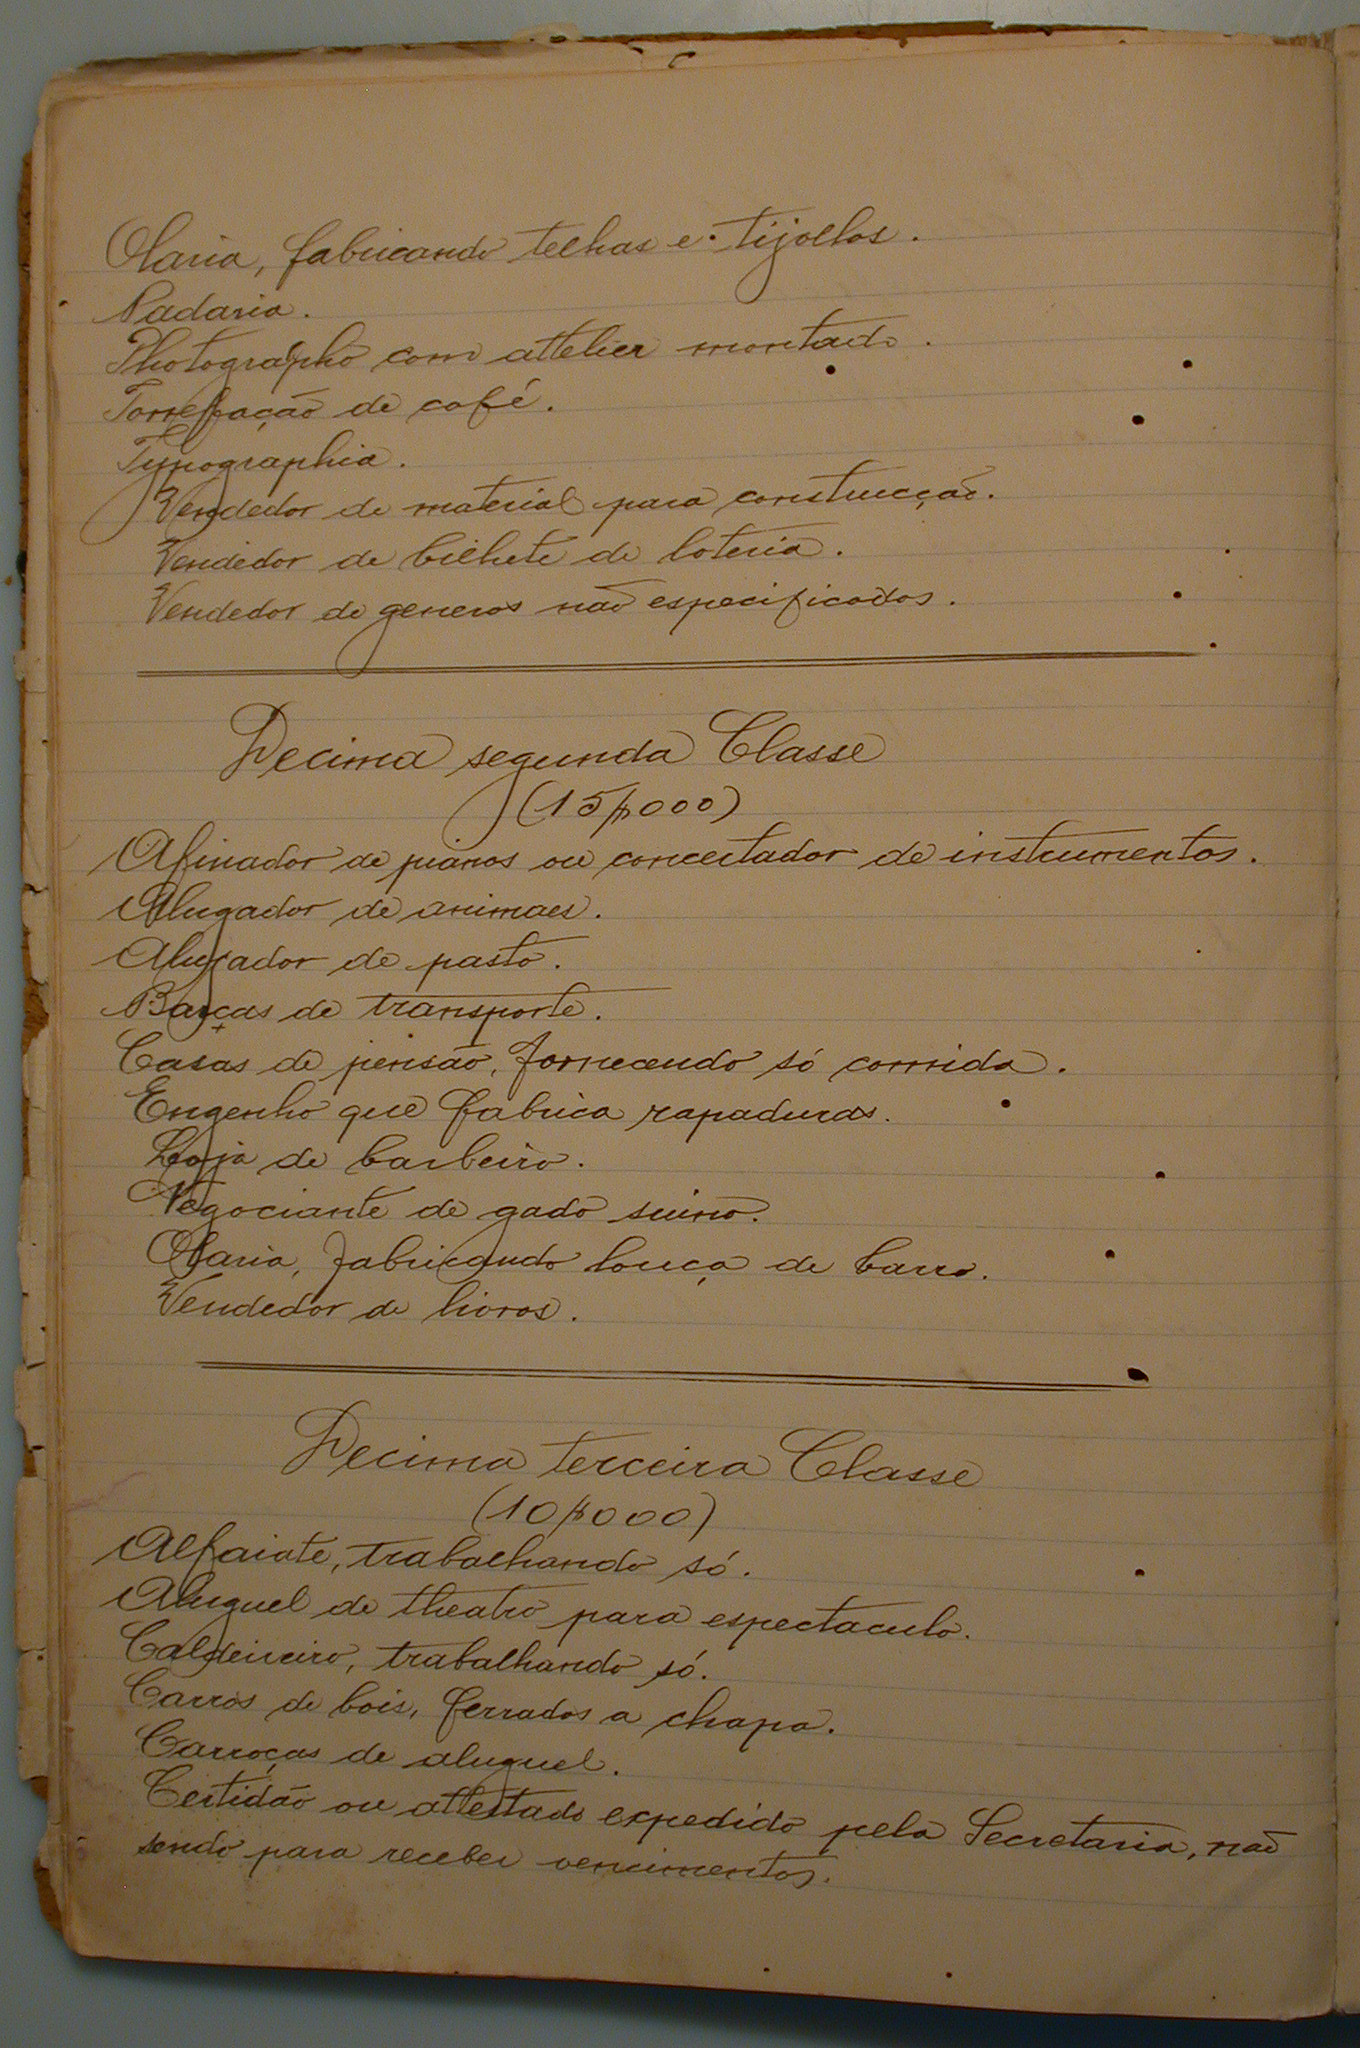 Olaria, fabricando telhas e tijollos.
Padaria.
Photographo com attelier montado.
Torrefação de café.
Typographia.
Vendedor de material para construcção.
Vendedor de bilhete de loteria.
Vendedor de generos não especificados.
Decima segunda Classe
(15$000)
Afinador de pianos ou concertador de instrumentos.
Alugador de animaes.
Alugador de pasto.
Barcas de transporte.
Casas de pensão, fornecendo só comida.
Engenho que fabrica rapaduras.
Loja de barbeiro.
Negociante de gado suino.
Olaria, fabricando louça de barro.
Vendedor de livros.
Decima terceira Classe
(10$000)
Alfaiate, trabalhando só.
Aluguel de theatro para espectaculo.
Caldeireiro, trabalhando só.
Carros de bois, ferrados a chapa.
Carroças de aluguel.
Certidão ou attestado expedido pela Secretaria, não
sendo para receber vencimentos.